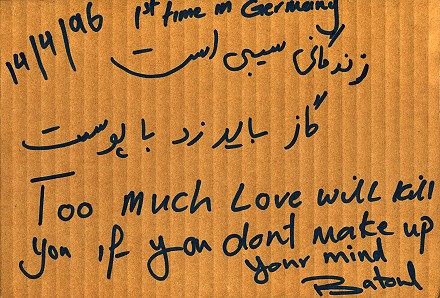 14/4/96 1st time in Germany
زندگانی سیبی است
گاز باید زد با پوست
Too much Love will kill
you if you dont make up
your mind
Batoul